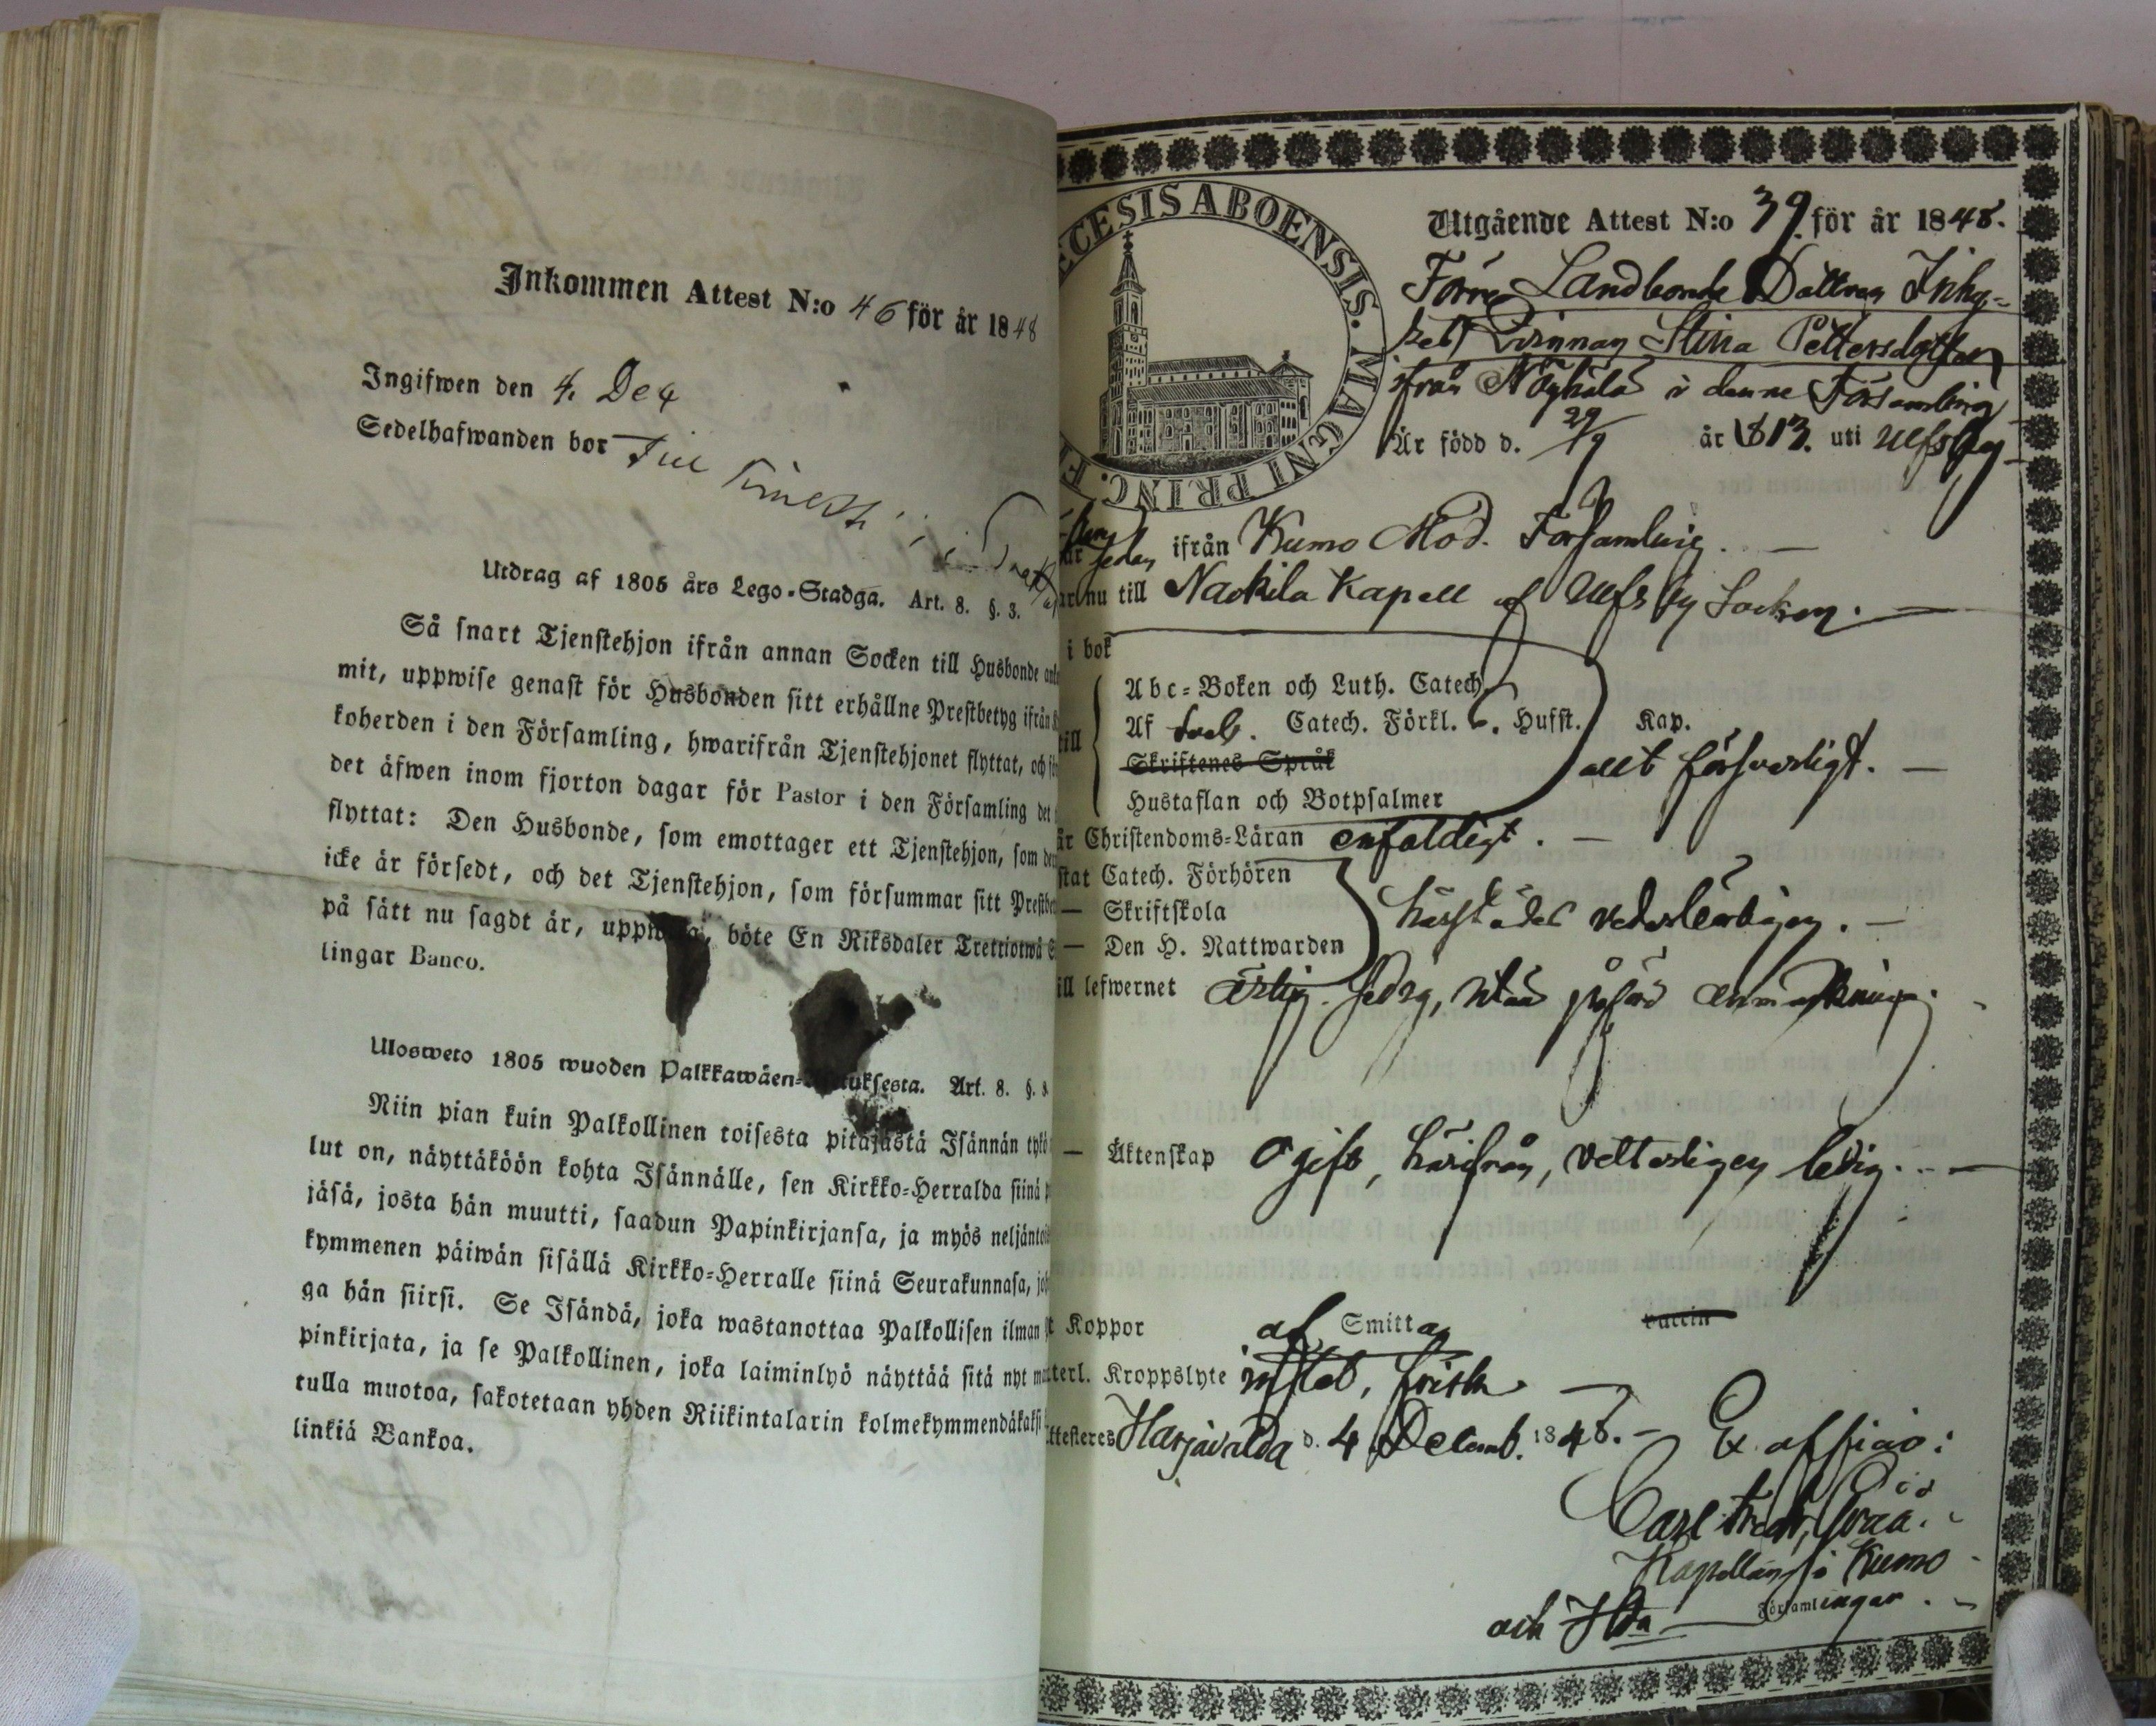 Inkommen Attest N:o 46 för år 1848
Ingifwen den 4 Dec
Sedelhafwanden bor
Utdrag af 1805 års Lego-Stadga. Art. 8. §. 3.
Så snart Tjenstehjon ifrån annan Socken till Husbonde
mit, uppwise genast för Husbonden sitt erhållne Prestbetyg ifrån
koherden i den Församling, hwarifrån Tjenstehjonet flyttat, och
det äfwen inom fjorton dagar för Pastor i den Församling det
flyttat: Den Husbonde, som emottager ett Tjenstehjon, som
icke är försedt, och det Tjenstehjon, som försummar sitt
på sätt nu sagdt är, böte En Riksdaler Trettiotwå
lingar Banco.
Ulosweto 1805 wuoden Art. 8. §.
Niin pian kuin Palkollinen toisesta pitäjästä Isännän
lut on, näyttäköön kohta Isännälle, sen Kirkko-Herralda siinä
jäsä, josta hän muutti, saadun Papinkirjansa, ja myös
kymmenen päiwän sisällä Kirkko-Herralle siinä Seurakunnasa,
ga hän siirsi. Se Isändä, joka wastanottaa Palkollisen ilman
pinkirjata, ja se Palkollinen, joka laiminlyö näyttää sitä nyt
tulla muotoa, sakotetaan yhden Riikintalarin
linkiä Bankoa.
ECESIS ABOENSIS. MAGNI PRINC. FI
Utgående Attest N:o 39 för år 1848.
Förre Landbonde Dottren Inhy-
Qvinnan Stina Pettersdotter
ifrån i denne Församling
Är född d. 29/9 år 1813. uti Ulfsby
ifrån Kumo Mod. Församling.
nu till Nackila Kapell af Ulfsby Socken.
i bok
Abc-Boken och Luth. Catech.
till Af Catech. Förkl. Hufst. Kap.
Skriftenes Språk allt försvarligt.
Hustaflan och Botpsalmer
Christendoms-Läran enfaldigt.
Catech. Förhören
— Skriftskola härstädes vederbörligen.
— Den H. Nattwarden
lefwernet ärlig, utan anmärkning.
— Äktenskap Ogift, härifrån, vetterligen ledig.
Koppor af Smittan Vaccin
Kroppslyte frisk
Harjavalda d. 4 Decemb. 1848. Ex officio:
Carl
Kapellan i Kumo
och Församlingar.